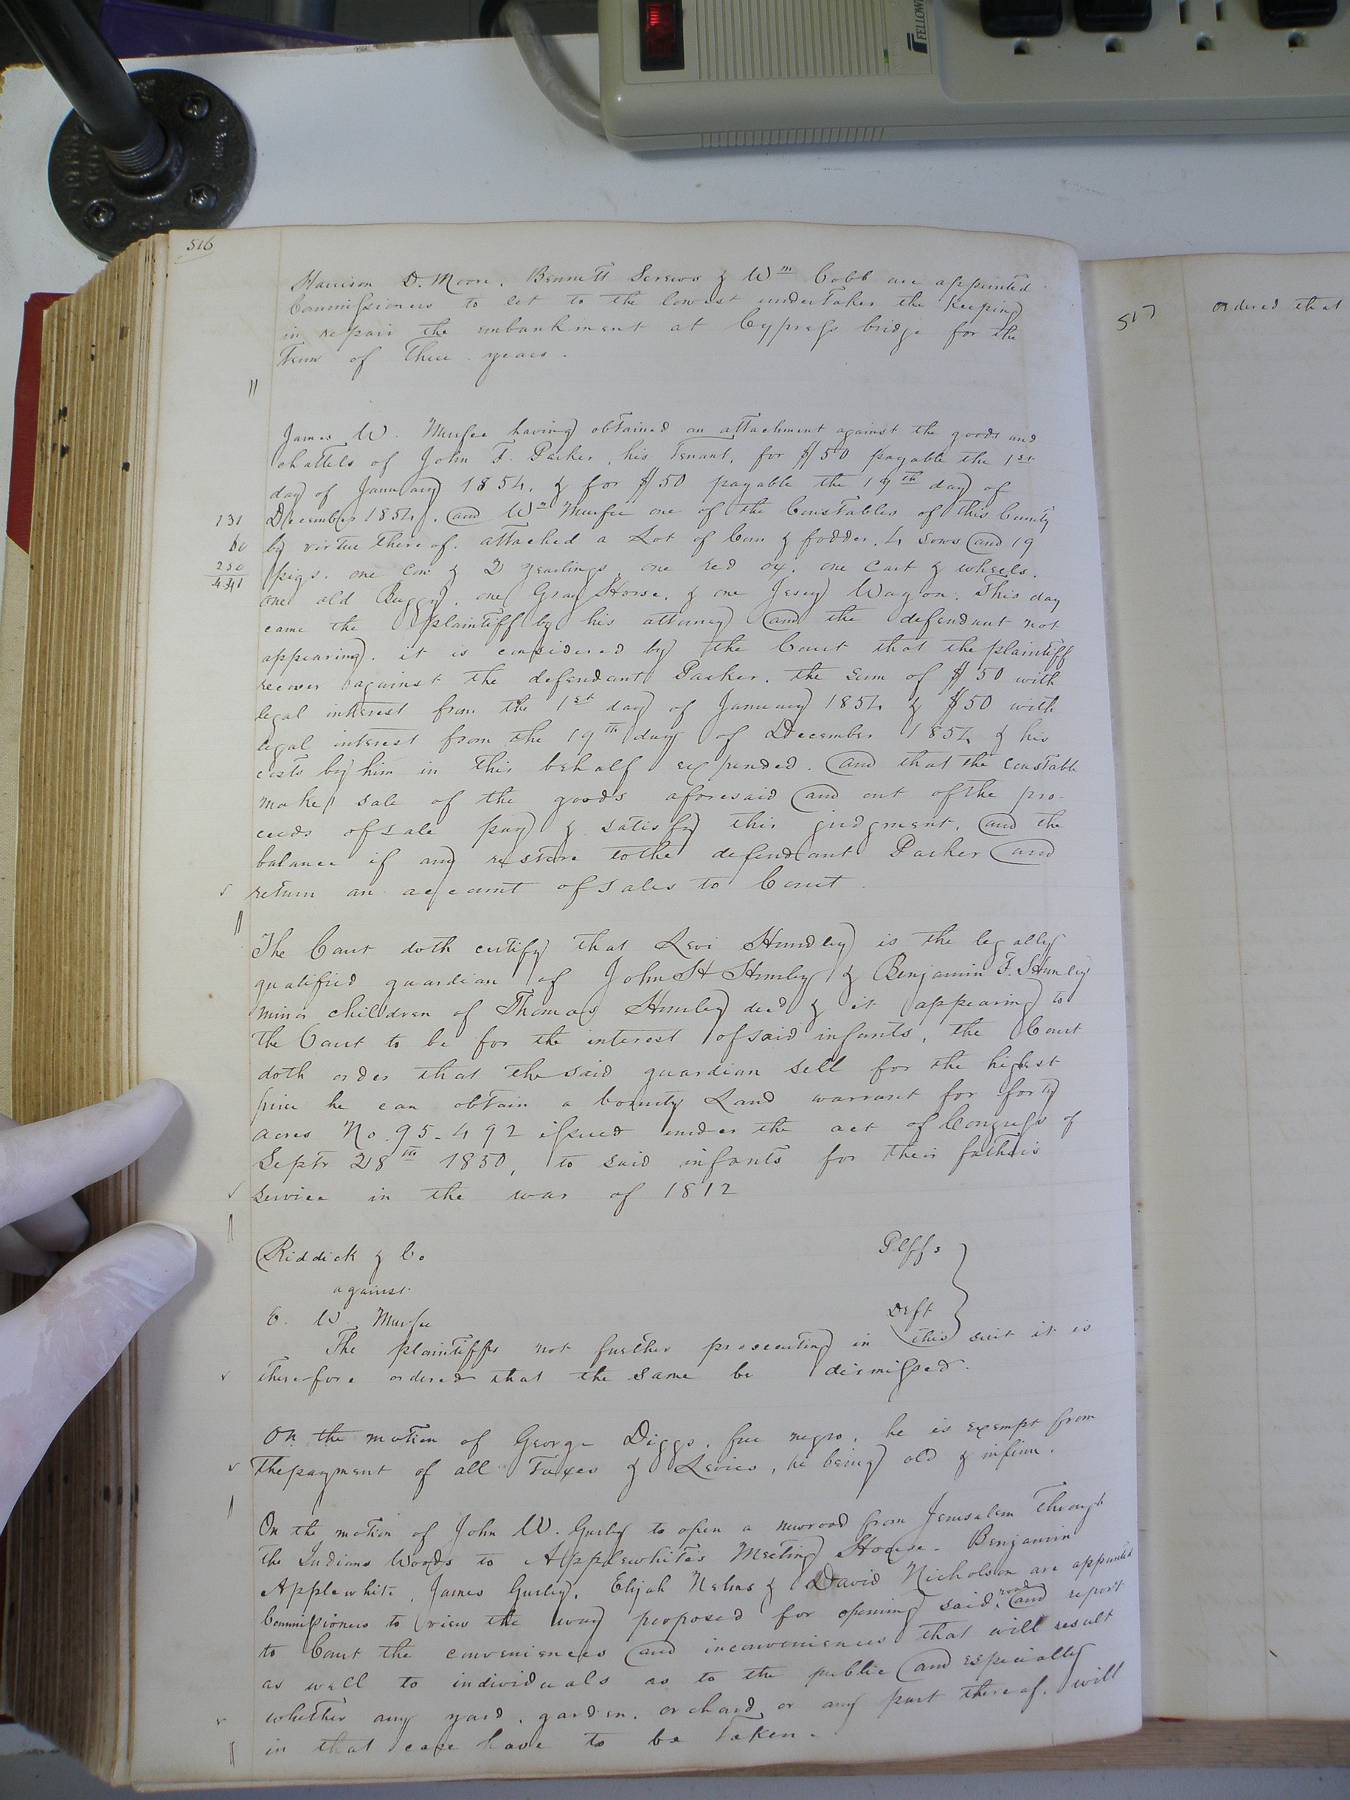 FELLOWES
516
Harrison D. Moore. Bennett Screws & Wm Cobb are appointed
Commissioners to let to the lowest undertaker the keeping
in repair the embankment at Cypress bridge for the
Term of three years.
James W. Murfee having obtained an attachment against the goods and
chattels of John F. Parker, his Tenant, for $50 payable the 1st
day of January 1854, & for $50 payable the 19th day of
131 December 1854, and Wm Murfee one of the Constables of this County
60 by virtue thereof. attached a Lot of Corn & fodder. 4 sows and 19
250 pigs. one Cow & 2 yearlings, one red ox. one Cart & wheels.
441 one old Buggy, one Gray Horse, & one Jersey Wagon. This day
came the plaintiff by his attorney and the defendant not
appearing. it is considered by the Court that the plaintiff
recover against the defendant Parker. the sum of $50 with
legal interest from the 1st day of January 1854 & $50 with
legal interest from the 19th day of December 1854 & his
costs by him in this behalf expended. and that the constable
make sale of the goods aforesaid and out of the pro-
ceeds of sale pay & satisfy this judgment. and the
balance if any restore to the defendant Parker and
return an account of sales to Court.
The Court doth certify that Levi Hundley is the legally
qualified guardian of John H Hunley & Benjamin F. Hunley
minor children of Thomas Hunley decd & it appearing to
the Court to be for the interest of said infants, the Court
doth order that the said guardian sell for the highest
price he can obtain a bounty Land warrant for forty
acres No. 95-492 issued under the act of Congress of
Septr 28th 1850, to said infants for their father's
service in the war of 1812
Riddick & Co Plffs
against
E. W. Murfee Deft
The plaintiffs not further prosecuting in this suit it is
therefore ordered that the same be dismissed.
On the motion of George Diggs, free negro, he is exempt from
the payment of all Taxes & Levies, he being old & infirm.
On the motion of John W. Gurley to open a new road from Jerusalem Through
the Indians Woods to Applewhite's Meeting House. Benjamin
Applewhite, James Gurley, Elijah Nelms & David Nicholson are appointed
Commissioners to view the way proposed for opening said road and report
to Court the conveniences and inconveniences that will result
as well to individuals as to the public and especially
whether any yard, garden, orchard or any part thereof. will
in that case have to be Taken.
517
Ordered that